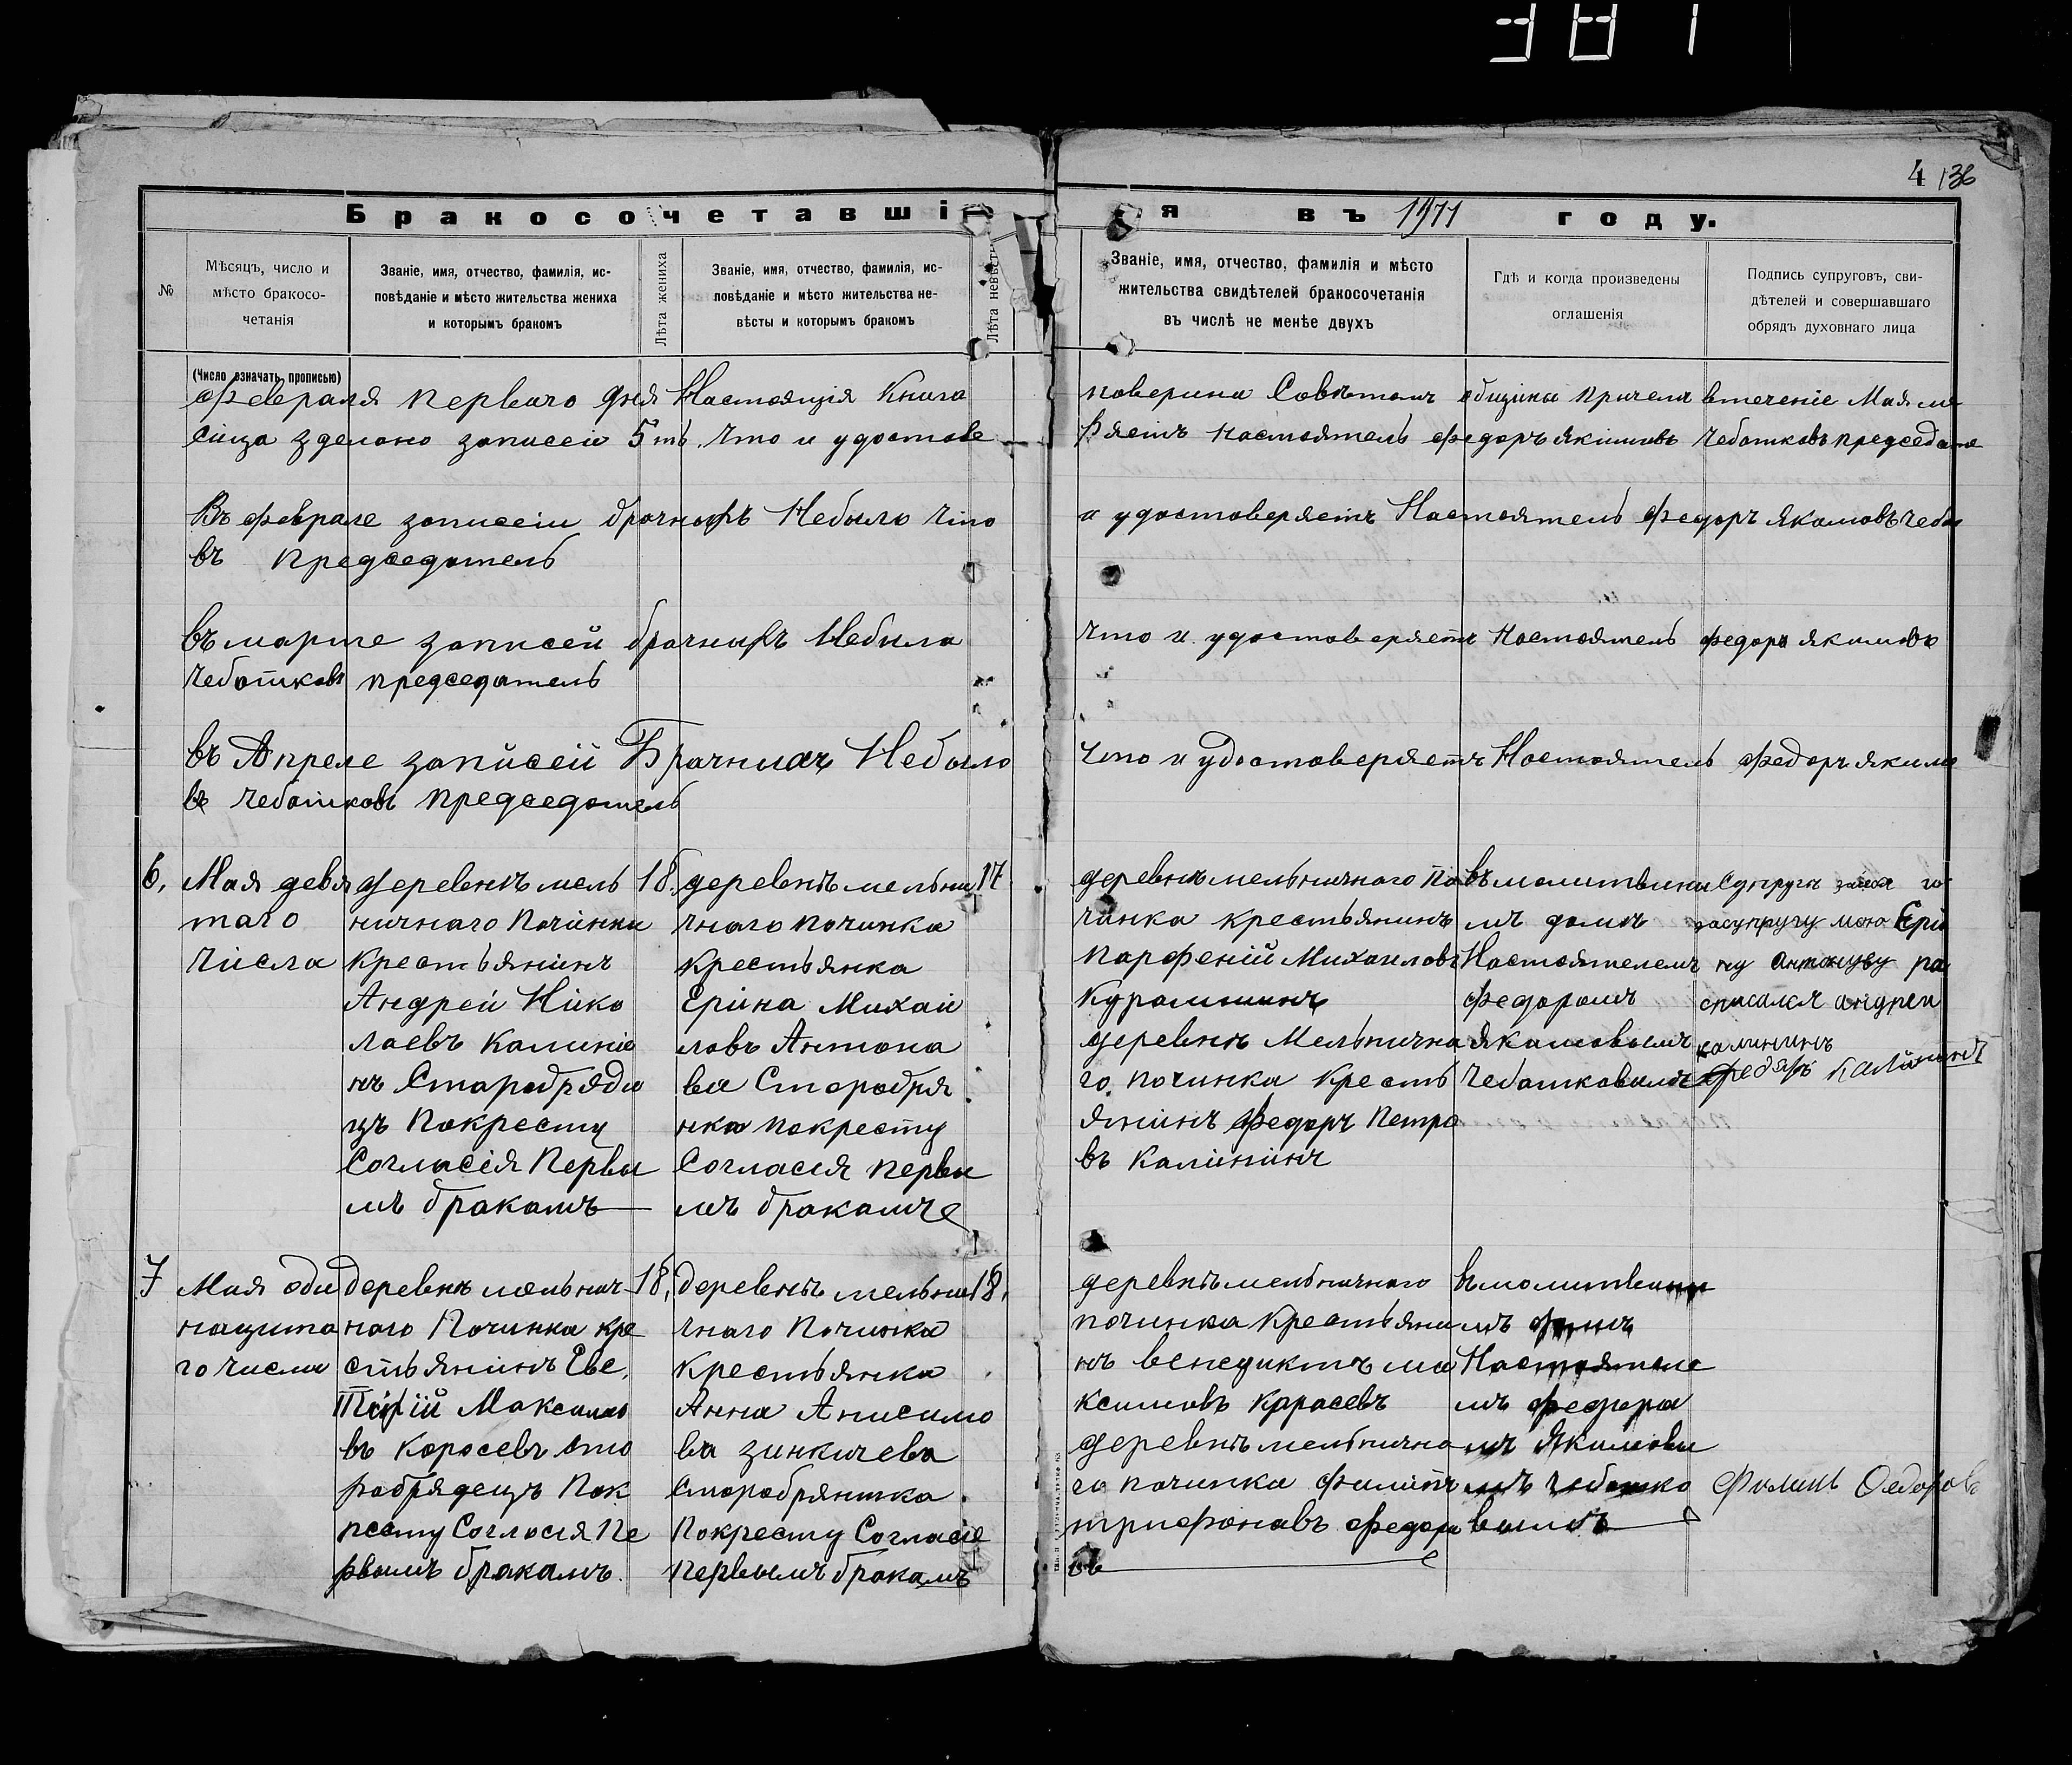 381
4 136
Бракосочетавшіеся въ 1911 году.
№
Мѣсяцъ, число и
мѣсто бракосо-
четанія
Званіе, имя, отчество, фамилія, ис-
повѣданіе и мѣсто жительства жениха
и которымъ бракомъ
Лѣта жениха
Званіе, имя, отчество, фамилія, ис-
повѣданіе и мѣсто жительства не-
вѣсты и которымъ бракомъ
Лѣта невѣсты
Званіе, имя, отчество, фамилія и мѣсто
жительства свидѣтелей бракосочетанія
въ числѣ не менѣе двухъ
Гдѣ и когда произведены
оглашенія
Подпись супруговъ, сви-
дѣтелей и совершавшаго
обрядъ духовнаго лица
(Число означать прописью)
Февраля перваго дня Настоящія Книга поверина Советомъ общины Причемъ втеченіе Мая ме
сица зделано записеіи 5тъ, что и удостове ряетъ настоятель федоръ якимовъ Чеботковъ председате
Въ феврале записеіи брачныхъ Небыло что и удостоверяетъ Настоятель Федоръ якимовъ Чебот
въ председатель
въ марте записей брачныхъ Небыла что и удостоверяетъ Настоятель федоръ якимовъ
Чеботковъ председатель
въ Апреле записей Брачныхъ Небыло что и удостоверяетъ Настоятель федоръ якимо
въ Чеботковъ председатель
6,
Мая девя
таго
числа
деревнъ мель
ничнаго Починки
крестьянинъ
Андрей Нико
лаевъ Калини
нъ Старобряди
цъ Покресту
Согласія Первы
мъ бракамъ
18.
деревнъ мельни
чнаго починка
Крестьянка
Ерина Михаи
ловъ Антона
ва Старобря
нка покресту
Согласия первы
мъ бракамъ
17
деревнъ мельничнаго по
чинка крестьянинъ
Парфеній Михаиловъ
Курамшинъ
деревнъ Мельнична
го починка Кресть
янинъ Федоръ Петро
въ Калининъ
въ молитвины
мъ домъ
Настоятелемъ
Федоромъ
Якимовымъ
Чеботковымъ
Супругъ
засупругу мою Ери
ну антонову ра
списался андреи
калининъ
федоръ Калининъ
7
Мая оди
нацита
го числа
деревнъ мельнич
наго Починка кре
стьянинъ Еве
Максимо
въ Коросевъ ста
робрядецъ Пок
ресту Согласия Пе
рвымъ бракамъ
18,
деревнъ мельни
чнаго Починка
крестьянка
Анна Анисимо
ва зинкичева
старобрянка
Покресту Согласіе
первымъ бракамъ
18,
деревнъ мельничнаго
починка Крестьяни
нъ венедиктъ ма
ксимовъ Карасевъ
деревнъ мельнична
го починка филипъ
трифонавъ федоро
въ
въ молитвинны
мъ домъ
Настоятеле
мъ федоро
мъ Якимовы
мъ Чеботко
вымъ
Филипъ Федоровъ